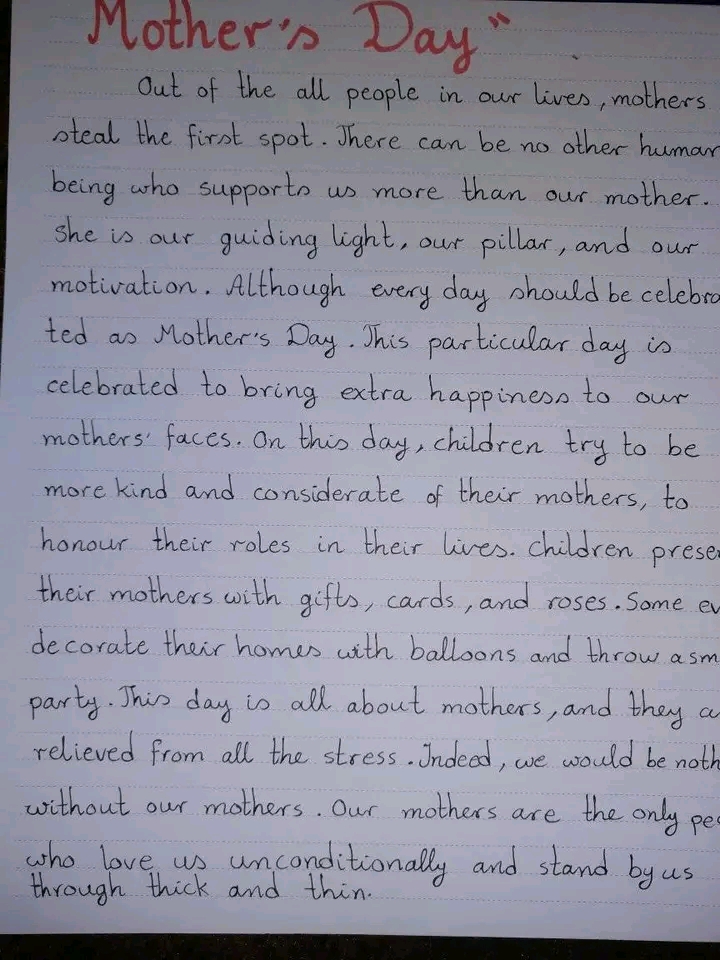 Mother's Day"
Out of the all people in our lives, mothers
steal the first spot. There can be no other human
being who supports us more than our mother.
She is our guiding light, our pillar, and our
motivation. Although every day should be celebra
ted as Mother's Day. This particular day is
celebrated to bring extra happiness to our
mothers' faces. On this day, children try to be
more kind and considerate of their mothers, to
honour their roles in their lives. Children prese
their mothers with gifts, cards, and roses. Some ev
decorate their homes with balloons and throw a sm
party. This day is all about mothers, and they a
relieved from all the stress. Indeed, we would be noth
without our mothers. Our mothers are the only pe
who love us unconditionally and stand by us
through thick and thin.